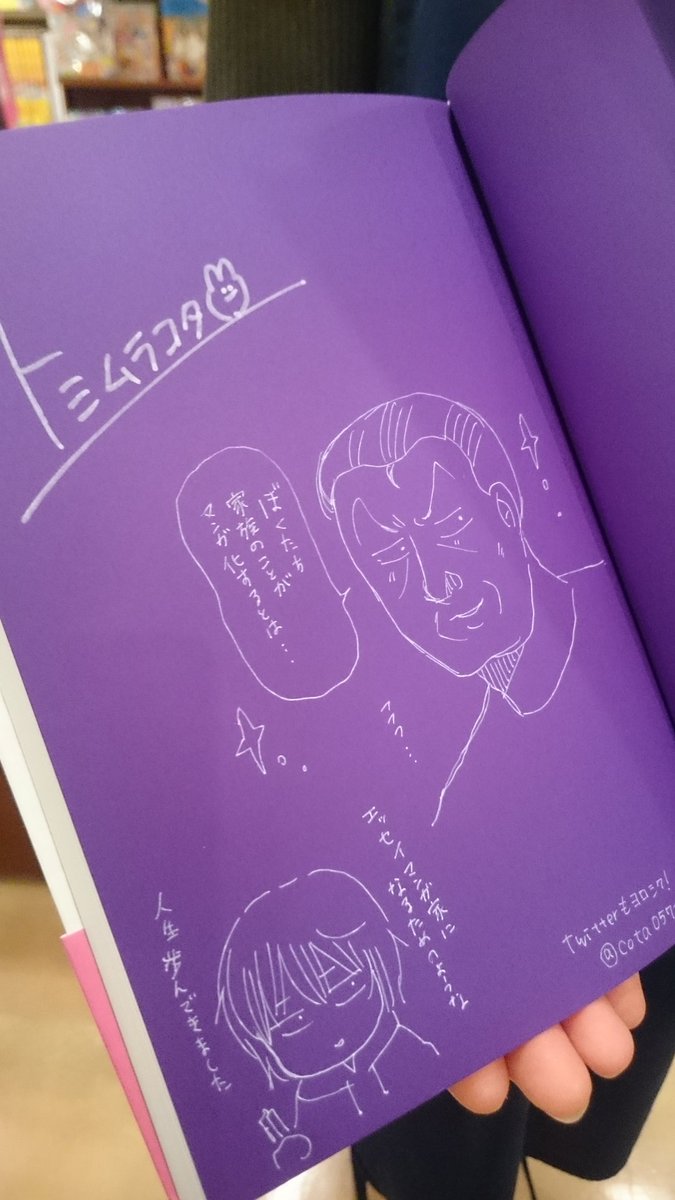 トミムラコタ
ぼくたち
家族のことが
マンガ化するとは…
フフフ…
エッセイマンガ家に
なるためのような
人生歩んできました
Twitterもヨロシク!
@cota057